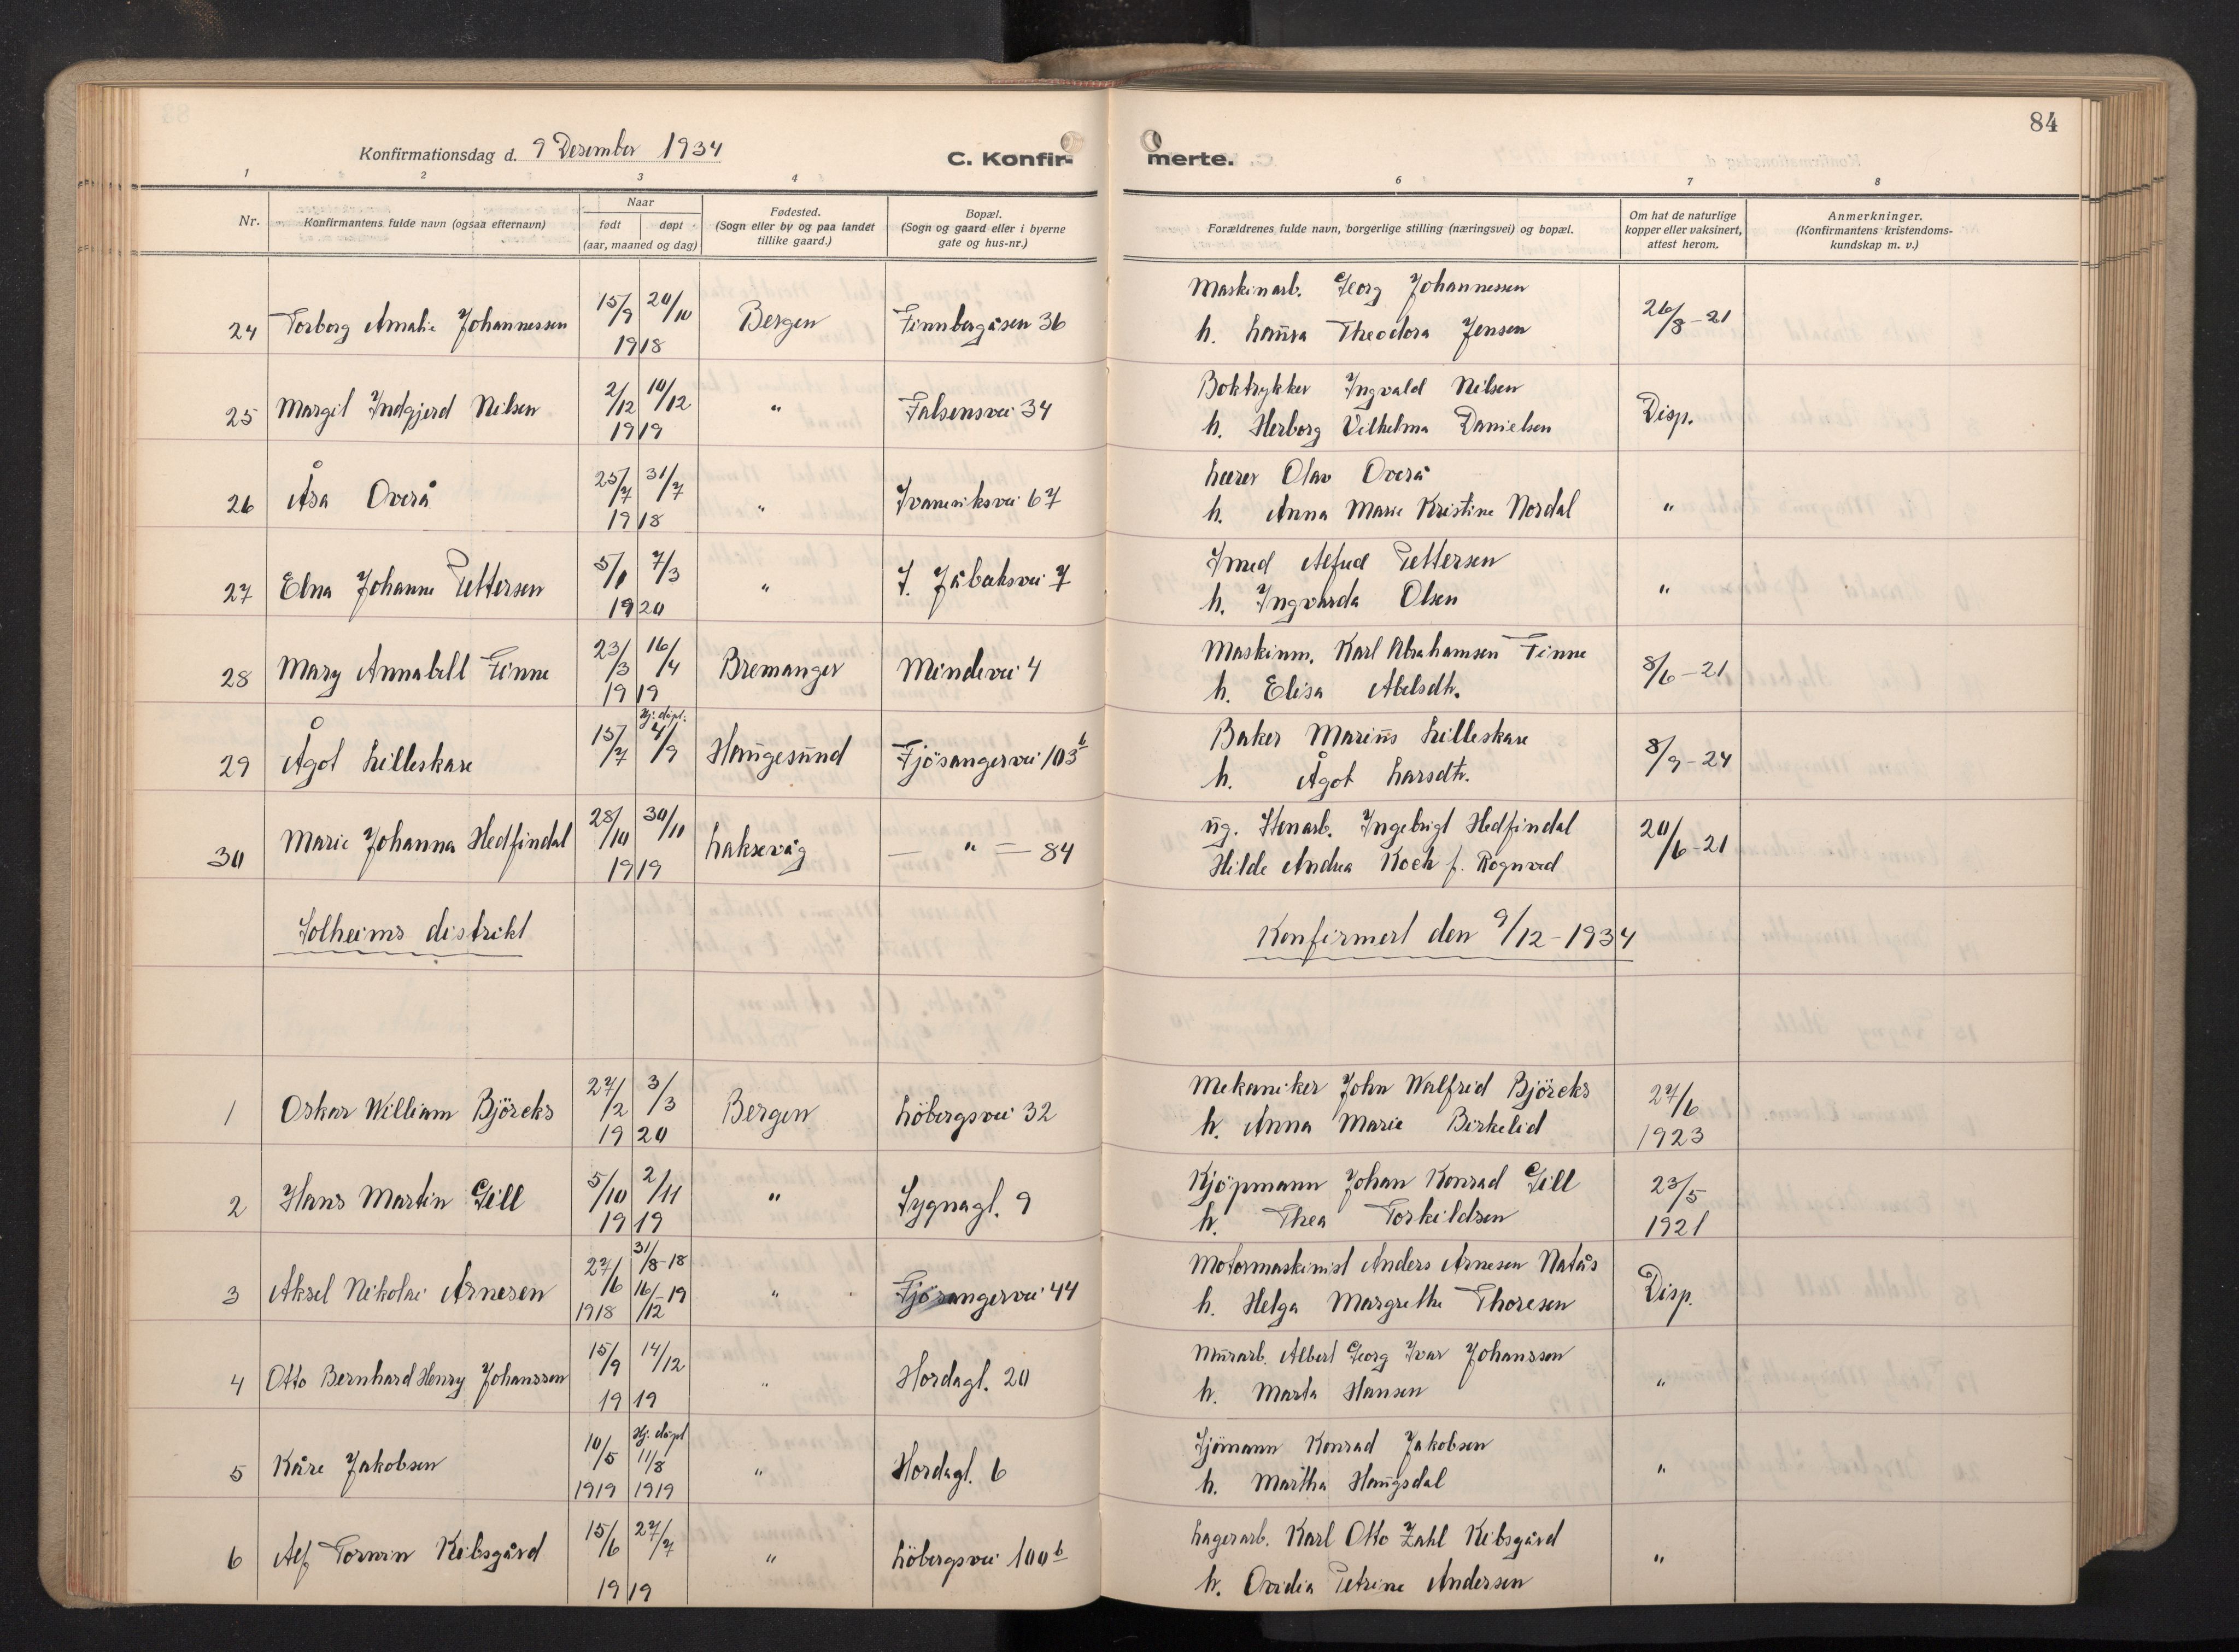 84
Konfirmationsdag d. 9 Desember 1934
C. Konfirmerte.
1 2 3 4 6 7 8
Nr.
Konfirmantens fulde navn (ogsaa efternavn)
Naar
født døpt
(aar, maaned og dag)
Fødested.
(Sogn eller by og paa landet
tillike gaard.)
Bopæl.
(Sogn og gaard eller i byerne
gate og hus-nr.)
Forældrenes fulde navn, borgerlige stilling (næringsvei) og bopæl.
Om hat de naturlige
kopper eller vaksinert,
attest herom.
Anmerkninger.
(Konfirmantens kristendoms-
kundskap m. v.)
24 Torborg Amalie Johannessen 15/9 20/10 1918 Bergen Finnbergåsen 36
Maskinarb. Georg Johannessen
h. Laura Theodora Jensen
26/8-21
25 Margit Indgjerd Nilsen 2/12 10/12 1919 " Falsensvei 34
Boktrykker Ingvald Nilsen
h. Herborg Vilhelma Danielsen
Disp.
26 Åsa Overå 25/7 31/7 1918 " Ivarsviksvei 67
Lærer Olav Overå
h. Anna Marie Kristine Nordal
"
27 Elna Johanne Pettersen 5/1 7/3 1920 " J. Jåbaksvei 7
Smed Alfred Pettersen
h. Ingvarda Olsen
"
28 Mary Annabell Finne 23/3 16/4 1919 Bremanger Mindevei 4
Maskinm. Karl Abrahamsen Finne
h. Elisa Abelsdtr.
8/6-21
29 Ågot Lilleskare 15/7 Hj. døpt. 4/9 Haugesund Fjösangervei 103b
Baker Marius Lilleskare
h. Ågot Larsdtr.
8/9-24
30 Marie Johanna Hedfindal 28/10 30/11 1919 Laksevåg — " — 84
ug. Stenarb. Ingebrigt Hedfindal
Hilde Andrea Koch f. Rognved
20/6-21
Solheims distrikt
Konfirmert den 9/12-1934
1 Oskar William Björeks 27/2 3/3 1920 Bergen Löbergsvei 32
Mekaniker John Walfred Björeks
h. Anna Marie Birkelid
27/6
1923
2 Hans Martin Gill 5/10 2/11 1919 " Sygnagt. 9
Kjöpmann Johan Konrad Gill
h. Thea Torkildsen
23/5
1921
3 Aksel Nikolai Arnesen 27/6 1918 31/8-18 16/12-19 " Fjösangervei 44
Motormaskinist Anders Arnesen Natås
h. Helga Margrethe Thoresen
Disp.
4 Otto Bernhard Henry Johanssen 15/9 14/12 1919 " Hordagt. 20
Murarb. Albert Georg Ivar Johanssen
h. Marta Hansen
"
5 Kåre Jakobsen 10/5 1919 Hj. døpt 11/8 1919 " Hordagt. 6
Sjömann Konrad Jakobsen
h. Martha Haugsdal
"
6 Alf Torwin Kibsgård 15/6 27/7 1919 " Löbergsvei 100b
Lagerarb. Karl Otto Zahl Kibsgård
h. Ovidia Petrine Andersen
"